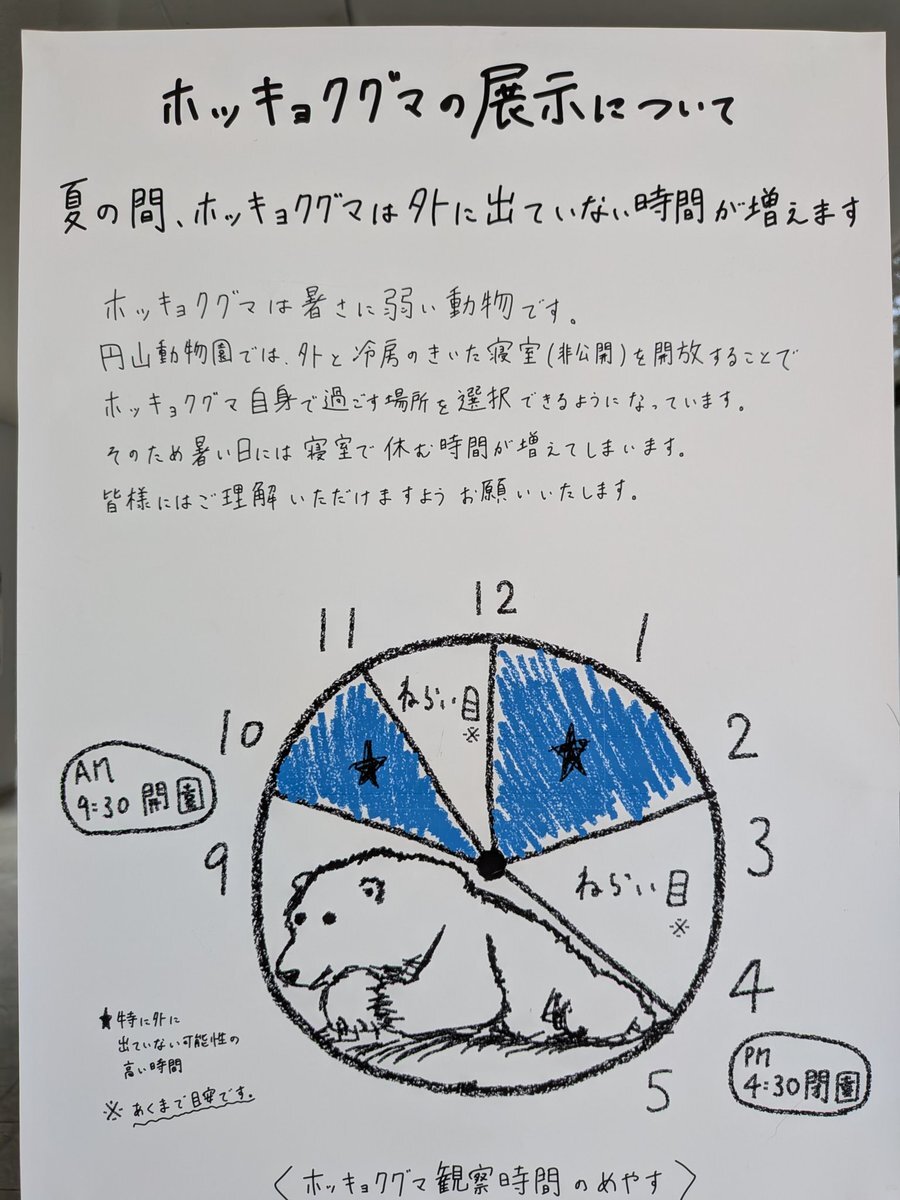 ホッキョクグマの展示について
夏の間、ホッキョクグマは外に出ていない時間が増えます
ホッキョクグマは暑さに弱い動物です。
円山動物園では、外と冷房のきいた寝室(非公開)を開放することで
ホッキョクグマ自身で過ごす場所を選択できるようになっています。
そのため暑い日には寝室で休む時間が増えてしまいます。
皆様にはご理解いただけますようお願いいたします。
12
11
1
ねらい目
※
10
2
★
★
AM
9:30 開園
9
3
ねらい目
※
4
★特に外に
出ていない可能性の
高い時間
※あくまで目安です。
PM
4:30 閉園
5
〈ホッキョクグマ観察時間のめやす〉